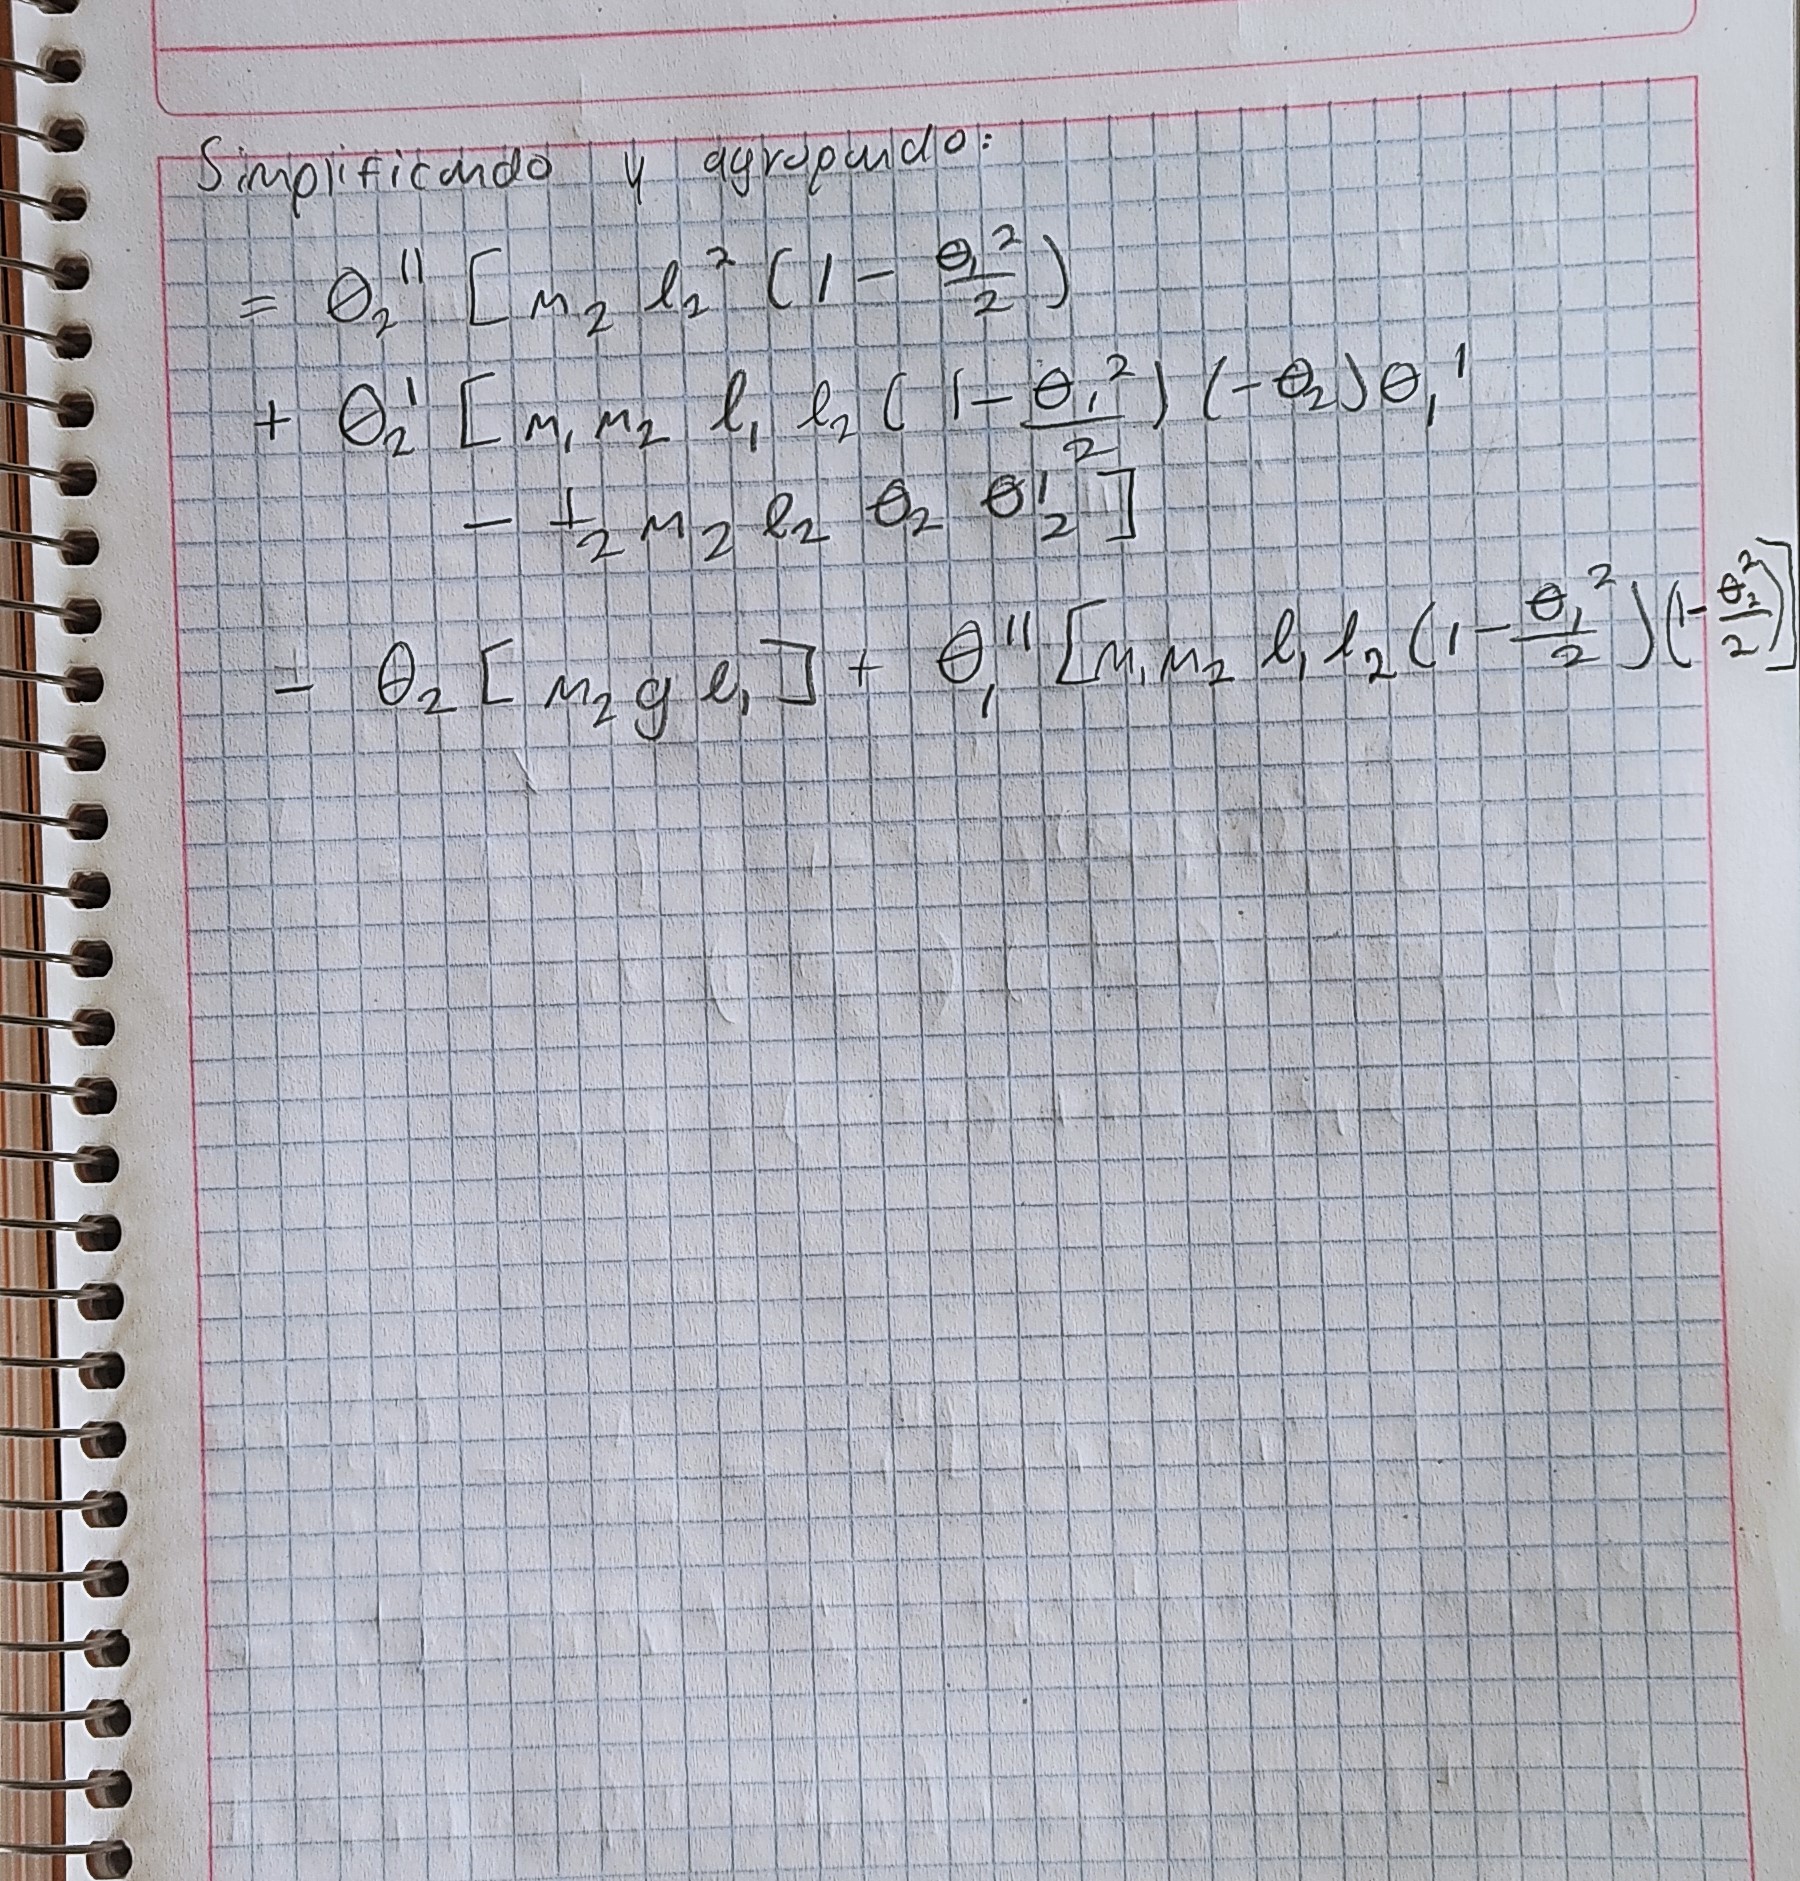 Simplificando y agrupando:
= θ₂'' [ m₂ l₂² (1 - θ₁²/2)
+ θ₂' [ m₁ m₂ l₁ l₂ (1 - θ₁²/2) (-θ₂) θ₁'
- 1/2 m₂ l₂ θ₂ θ₂'² ]
- θ₂ [ m₂ g l₁ ] + θ₁'' [ m₁ m₂ l₁ l₂ (1 - θ₁²/2) (1 - θ₂²/2) ]